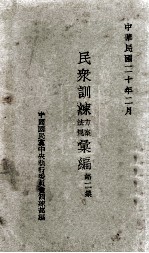 中華民國二十年二月
民衆訓練方案法規彙編 第二集
中國國民黨中央執行委員會訓練部編